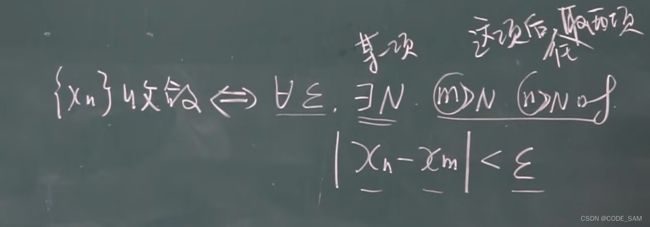 某项 这项后 任取两项
{xn}收敛⇔∀ε.∃N m>N n>N 时
|xn-xm|<ε
CSDN @CODE_SAM